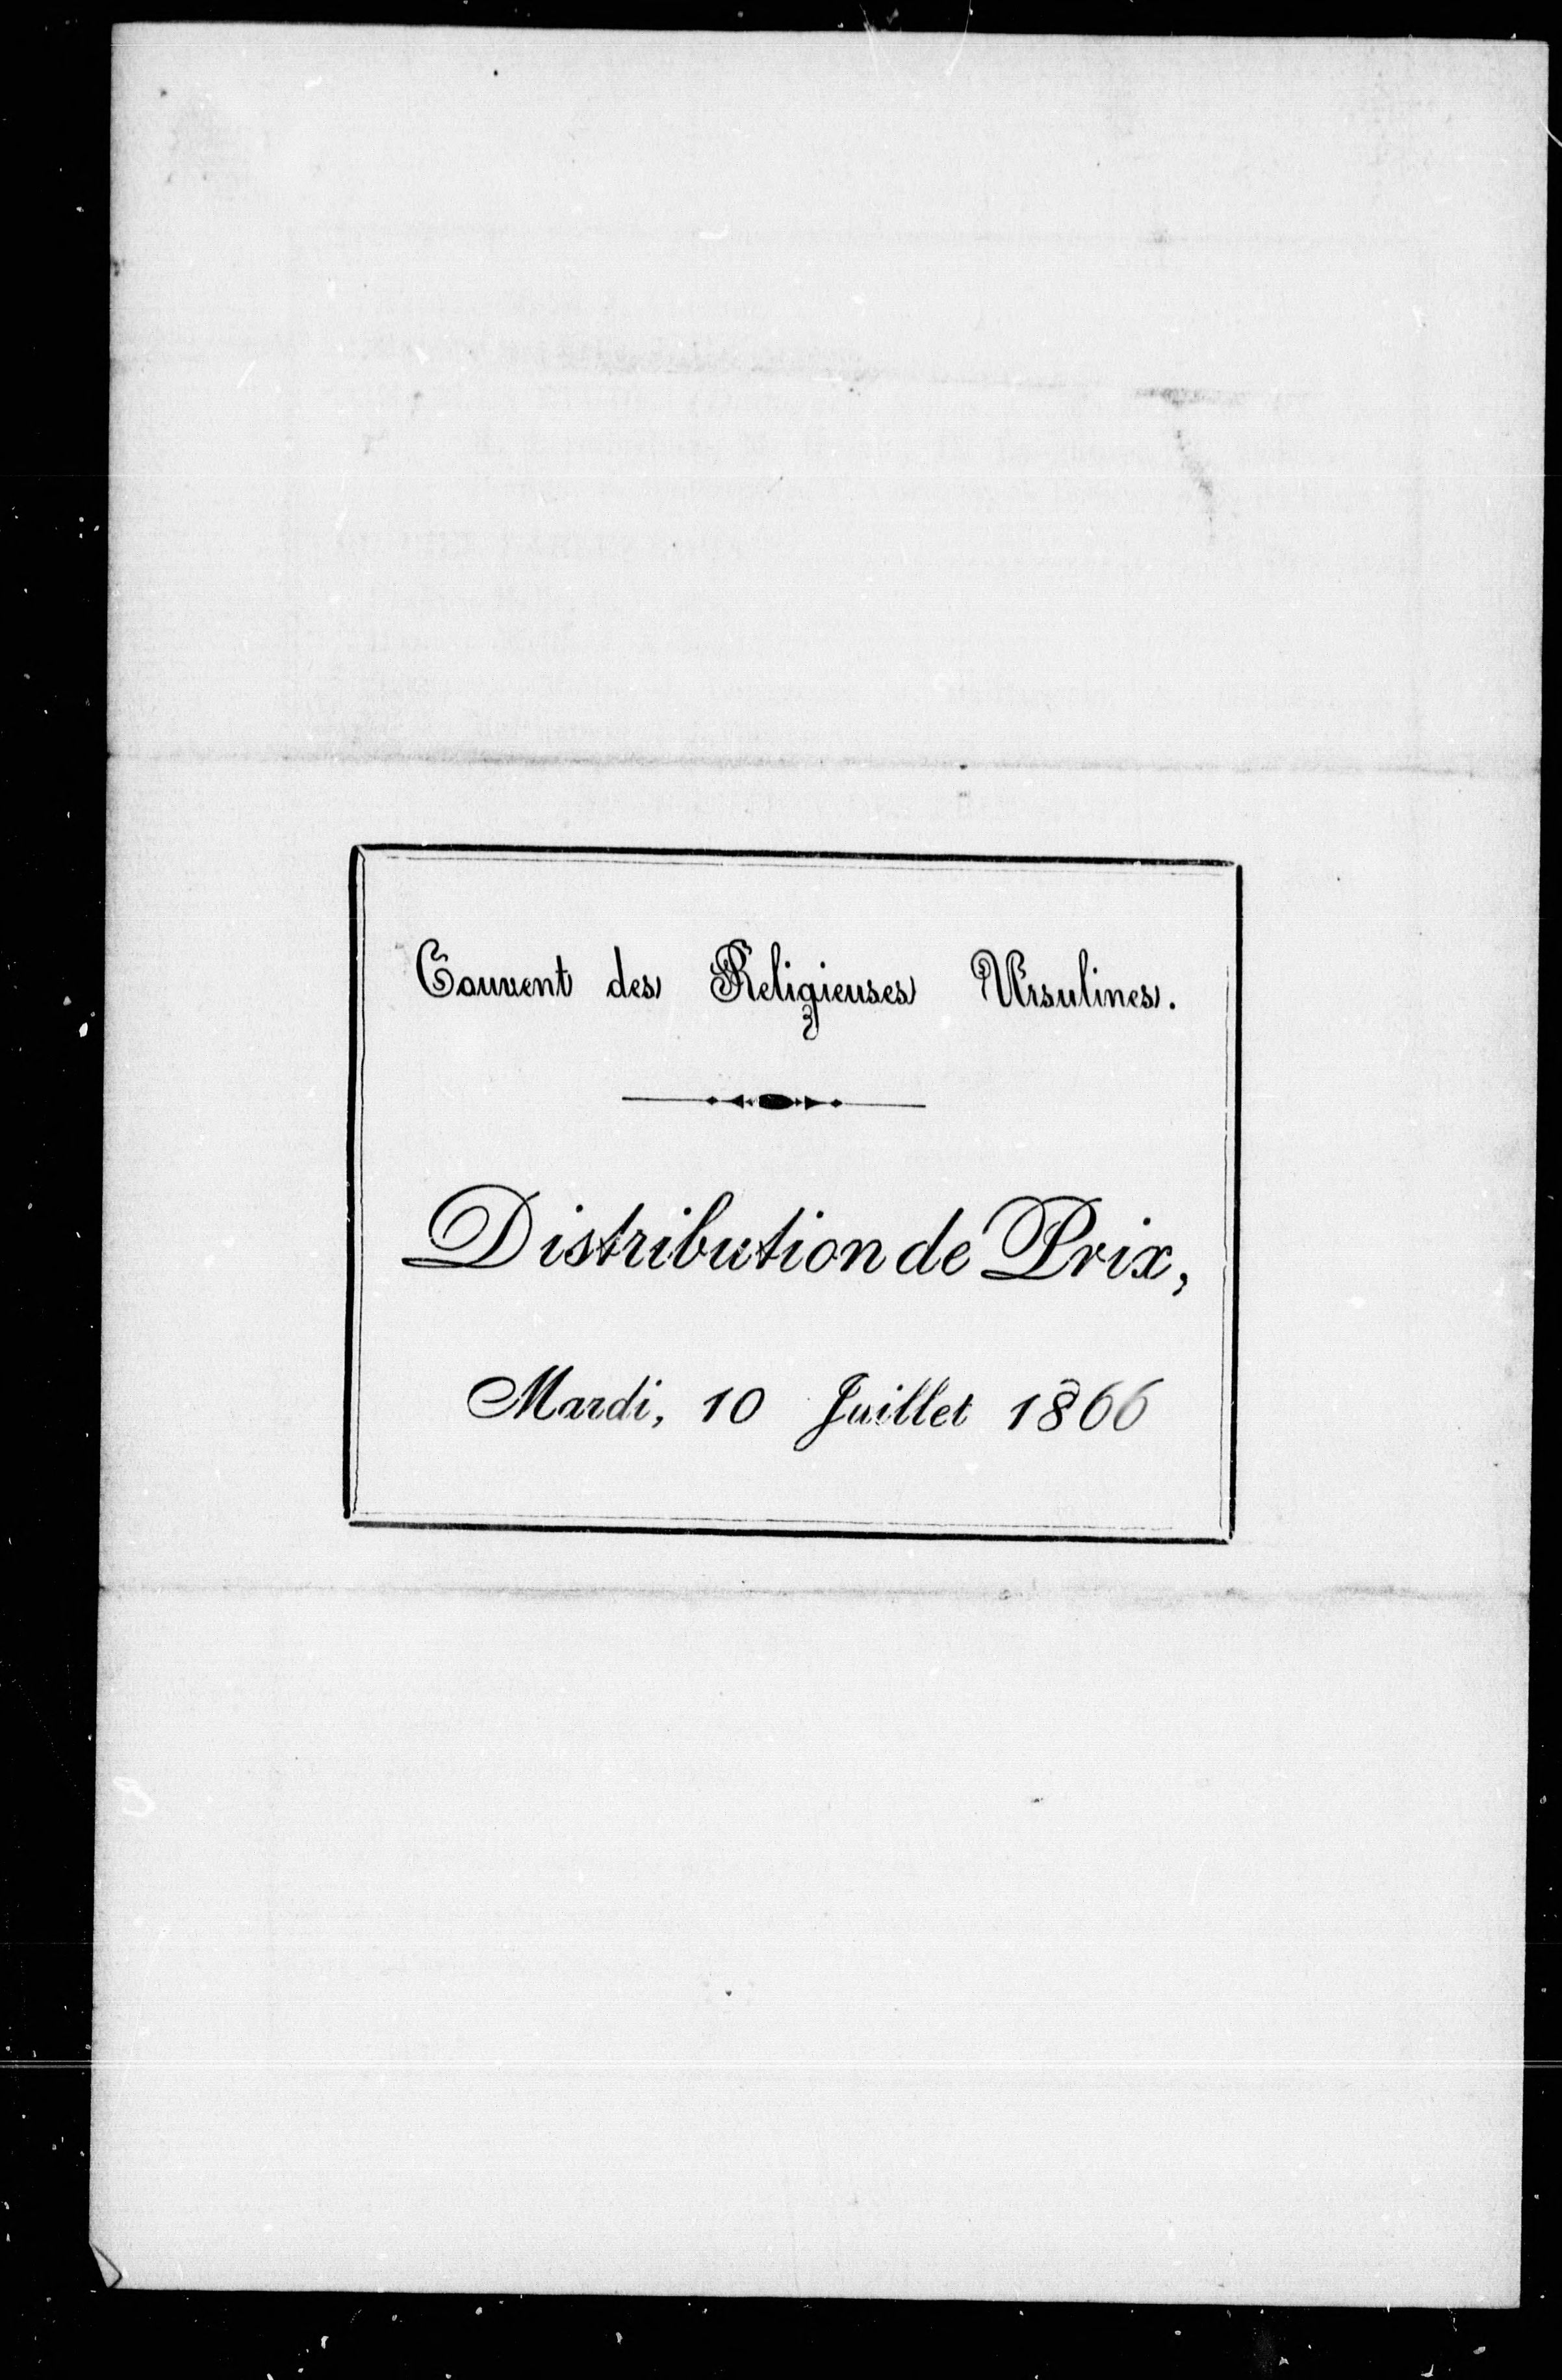 Couvent des Religieuses Ursulines.
Distribution de Prix,
Mardi, 10 Juillet 1866